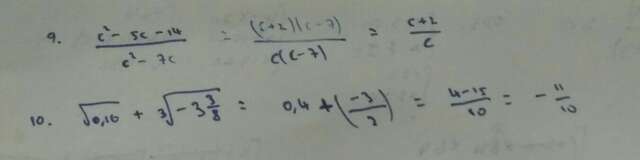 9. (c² - 5c - 14)/(c² - 7c) = ((c+2)(c-7))/(c(c-7)) = (c+2)/c
10. √0,16 + ∛(-3 3/8) = 0,4 + (-3/2) = (4-15)/10 = -11/10